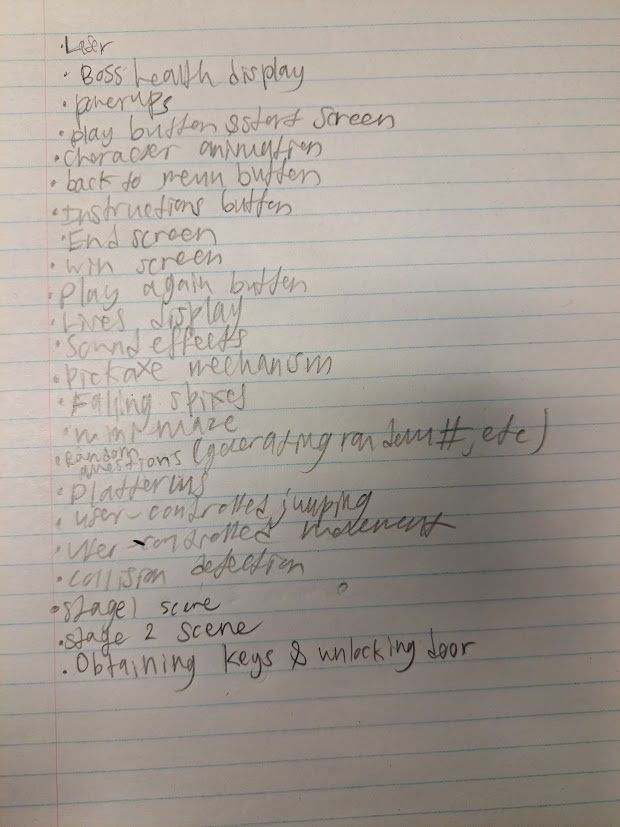 · Laser
· Boss health display
· powerups
· play button & start screen
· character animation
· back to menu button
· Instructions button
· End screen
· win screen
· Play again button
· Lives display
· Sound effects
· Pickaxe mechanism
· Falling spikes
· mini maze
· Random questions (generating random #, etc)
· Platforms
· user-controlled jumping
· User-controlled movement
· Collision detection
· Stage 1 scene
· stage 2 scene
· Obtaining keys & unlocking door